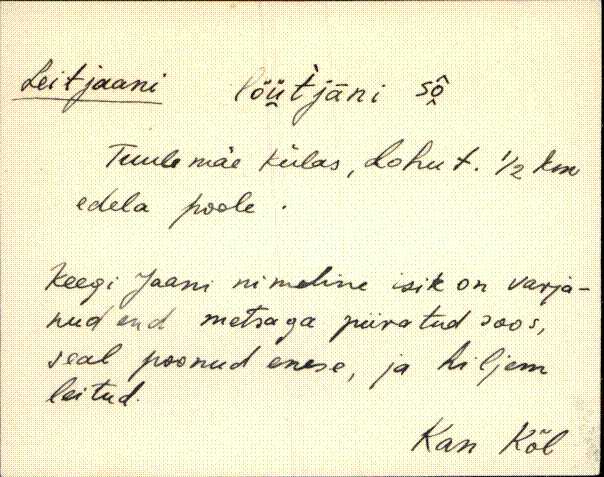 Leitjaani löüt̀jāni sô
Tuulemäe külas, Lohu t. 1/2 km
edela poole.
Keegi Jaani nimeline isik on varja-
nud end metsaga piiratud soos,
seal poonud enese, ja hiljem
leitud.
Kan Kõl